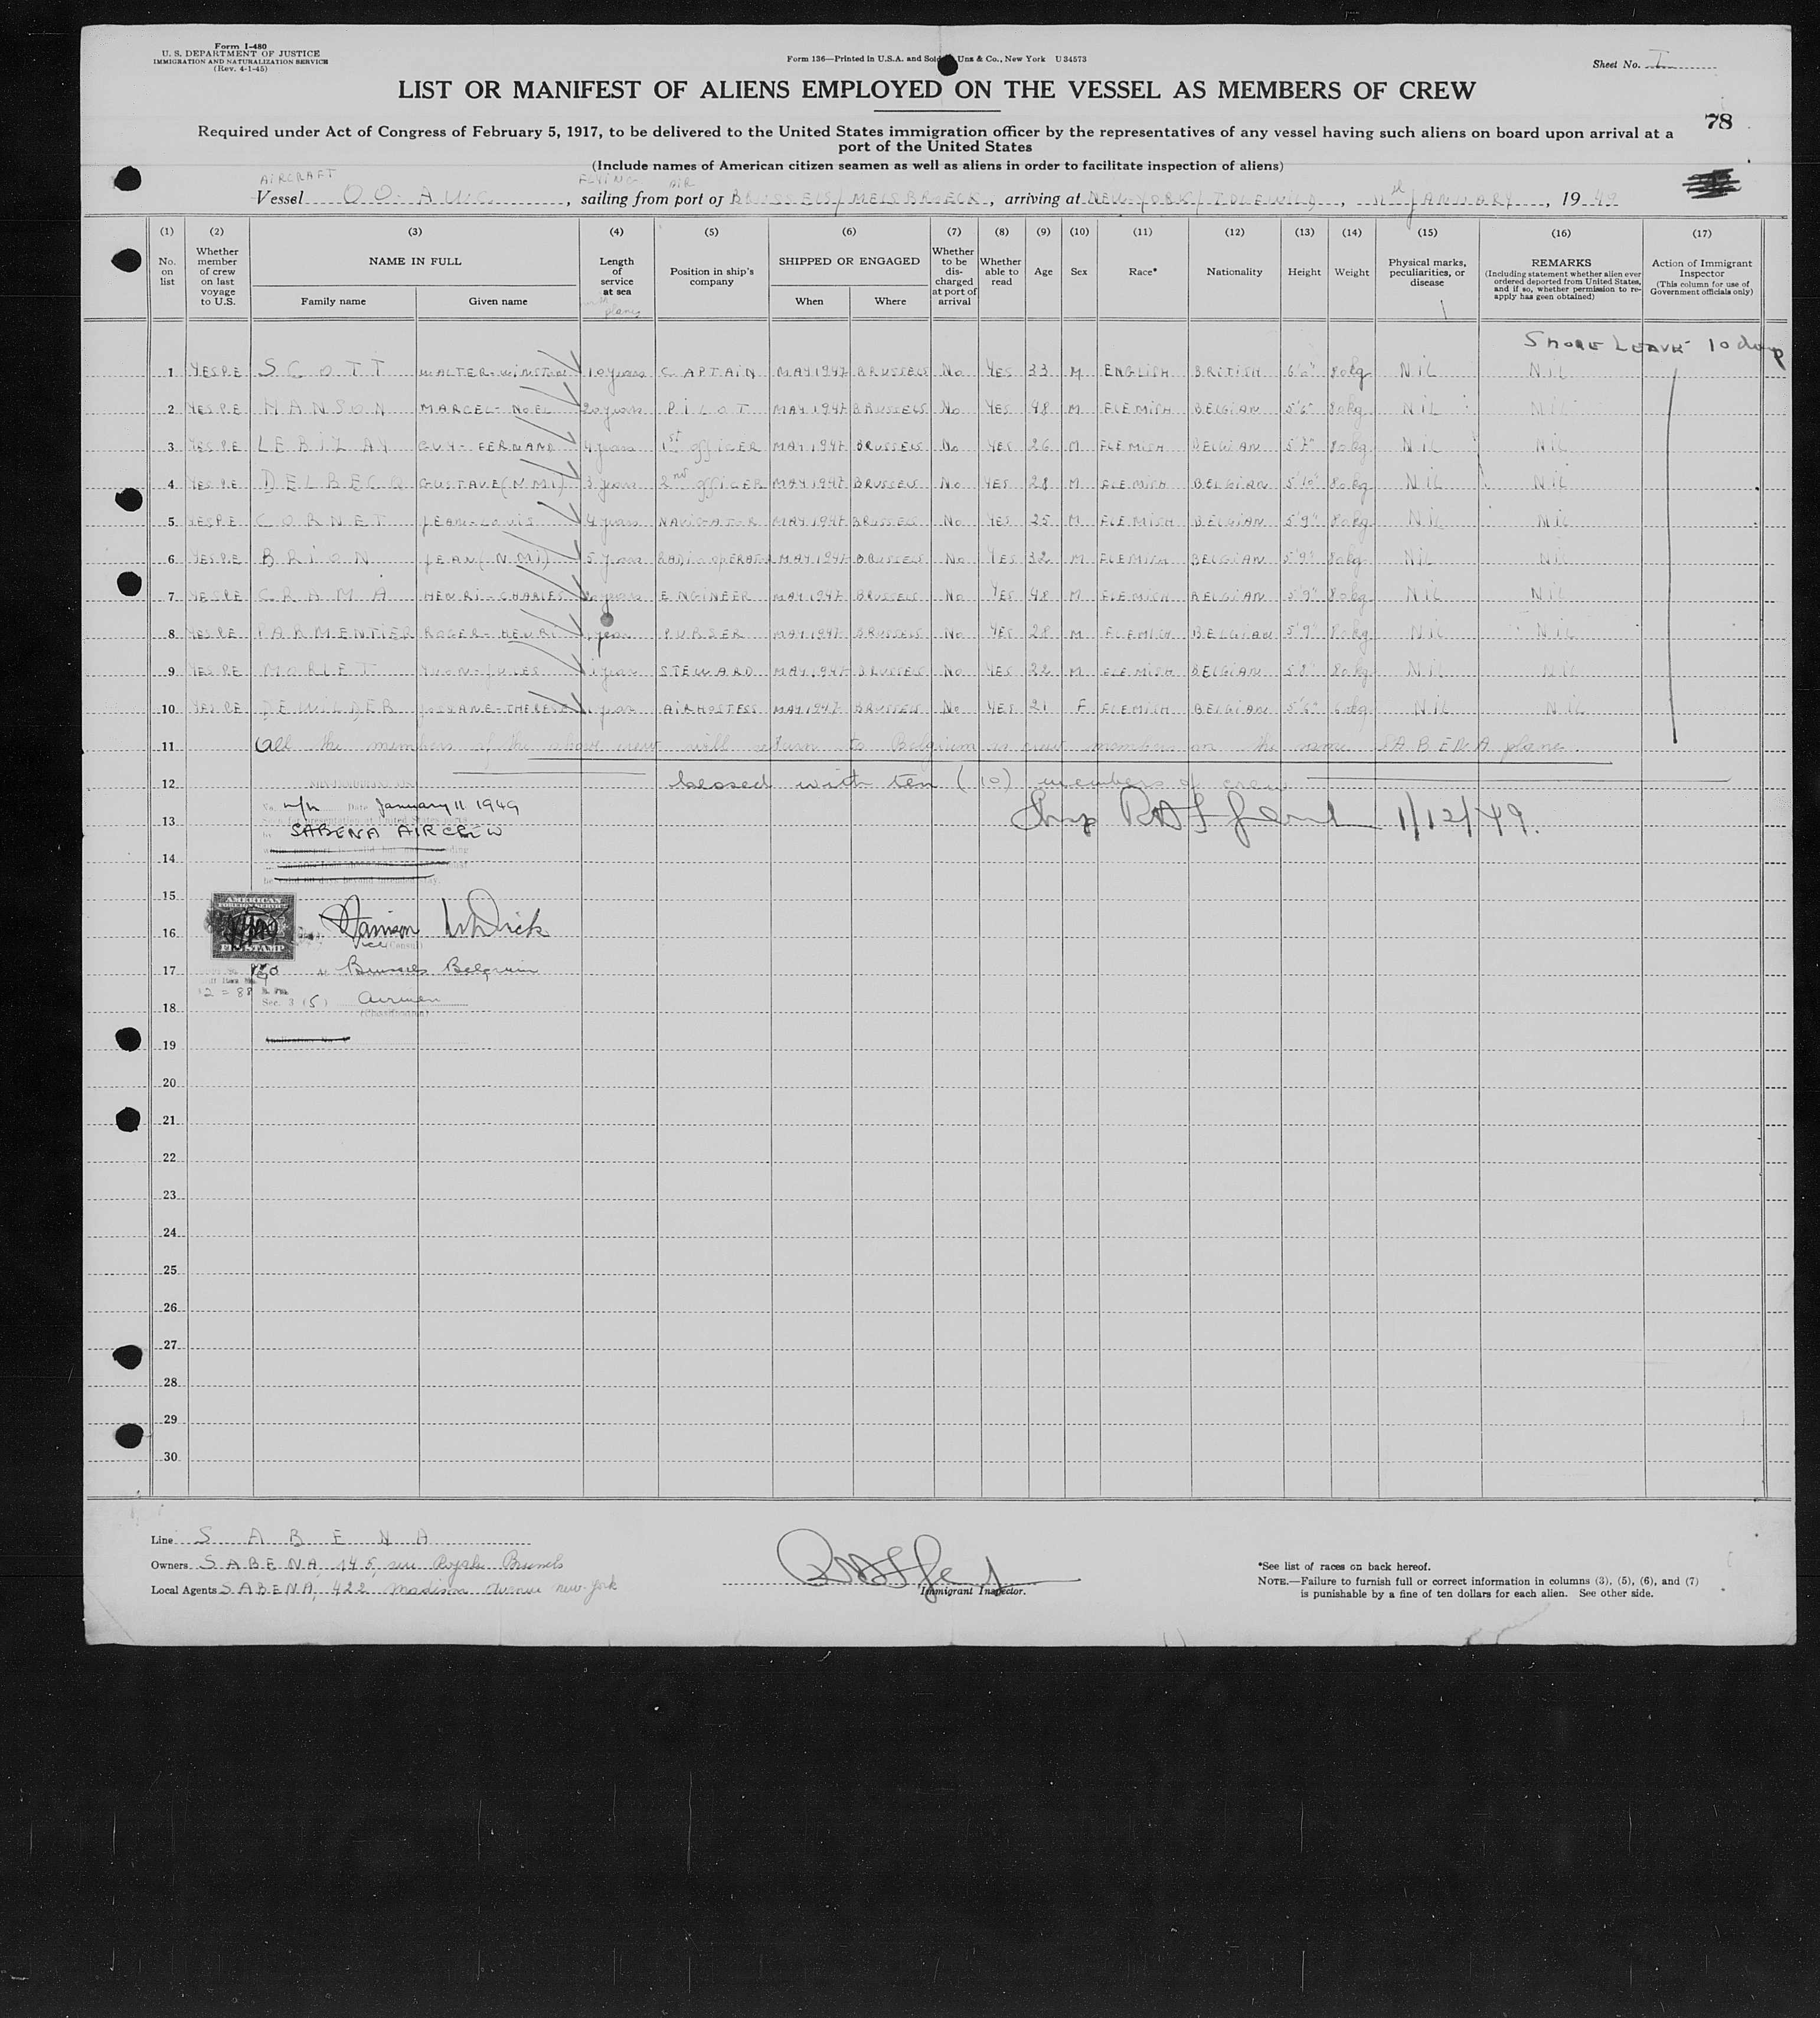 Form I-480
U. S. DEPARTMENT OF JUSTICE
IMMIGRATION AND NATURALIZATION SERVICE
(Rev. 4-1-45)
Form 136—Printed in U.S.A. and Sold Unz & Co., New York U 34573
Sheet No. I
LIST OR MANIFEST OF ALIENS EMPLOYED ON THE VESSEL AS MEMBERS OF CREW
78
Required under Act of Congress of February 5, 1917, to be delivered to the United States immigration officer by the representatives of any vessel having such aliens on board upon arrival at a
port of the United States
(Include names of American citizen seamen as well as aliens in order to facilitate inspection of aliens)
AIRCRAFT FLYING AIR
Vessel OO-AWC, sailing from port of BRUSSELS/MELSBROECK, arriving at NEW-YORK/IDLEWILD, JANUARY, 1949
(1) (2) (3) (4) (5) (6) (7) (8) (9) (10) (11) (12) (13) (14) (15) (16) (17)
No. on list
Whether member of crew on last voyage to U.S.
NAME IN FULL
Family name
Given name
Length of service at sea
plane
Position in ship's company
SHIPPED OR ENGAGED
When
Where
Whether to be discharged at port of arrival
Whether able to read
Age
Sex
Race*
Nationality
Height
Weight
Physical marks, peculiarities, or disease
REMARKS
(Including statement whether alien ever ordered deported from United States, and if so, whether permission to reapply has geen obtained)
Action of Immigrant Inspector
(This column for use of Government officials only)
SHORE LEAVE 10 days
1 YES P.E SCOTT WALTER-WINSTON 10 years CAPTAIN MAY 1947 BRUSSELS No YES 33 M ENGLISH BRITISH 6'6" 80kg NIL NIL
2 YES P.E HANSON MARCEL-NOEL 20 years PILOT MAY 1947 BRUSSELS No YES 48 M FLEMISH BELGIAN 5'6" 80kg NIL NIL
3 YES P.E GUY-FERNAND 4 years 1st OFFICER MAY 1947 BRUSSELS No YES 26 M FLEMISH BELGIAN 5'7" 80kg NIL NIL
4 YES P.E DELBECQ GUSTAVE (N.M.I) 3 years 2nd OFFICER MAY 1947 BRUSSELS No YES 28 M FLEMISH BELGIAN 5'10" 80kg NIL NIL
5 YES P.E CORNET JEAN-LOUIS 4 years NAVIGATOR MAY 1947 BRUSSELS No YES 25 M FLEMISH BELGIAN 5'9" 80kg NIL NIL
6 YES P.E BRION JEAN (N.M.I) 5 years RADIO OPERATOR MAY 1947 BRUSSELS No YES 32 M FLEMISH BELGIAN 5'9" 80kg NIL NIL
7 YES P.E CRAMA HENRI-CHARLES years ENGINEER MAY 1947 BRUSSELS No YES 48 M FLEMISH BELGIAN 5'9" 80kg NIL NIL
8 YES P.E PARMENTIER ROGER-HENRI 1 year PURSER MAY 1947 BRUSSELS No YES 28 M FLEMISH BELGIAN 5'9" 80kg NIL NIL
9 YES P.E MORLET YVON-JULES 1 year STEWARD MAY 1947 BRUSSELS No YES 22 M FLEMISH BELGIAN 5'8" 80kg NIL NIL
10 YES P.E DEWILDER THERESE 1 year AIRHOSTESS MAY 1947 BRUSSELS No YES 21 F FLEMISH BELGIAN 5'6" 60kg NIL NIL
11 All the members of the above crew will return to Belgium as crew members on the same SABENA plane.
12 closed with ten (10) members of crew
NON-IMMIGRANT VISA
No. Date January 11 1949
13 1/12/49.
SABENA AIRCREW
14
15
AMERICAN FOREIGN SERVICE
FEE STAMP
16
Vice (Consul)
17 Brussels Belgium
Sec. 3 (5) airmen
18
(Classification)
19
20
21
22
23
24
25
26
27
28
29
30
Line SABENA
Owners SABENA, 145, rue Royale Brussels
Local Agents SABENA, 422, Madison Avenue new-york
Immigrant Inspector.
*See list of races on back hereof.
NOTE.—Failure to furnish full or correct information in columns (3), (5), (6), and (7)
is punishable by a fine of ten dollars for each alien. See other side.